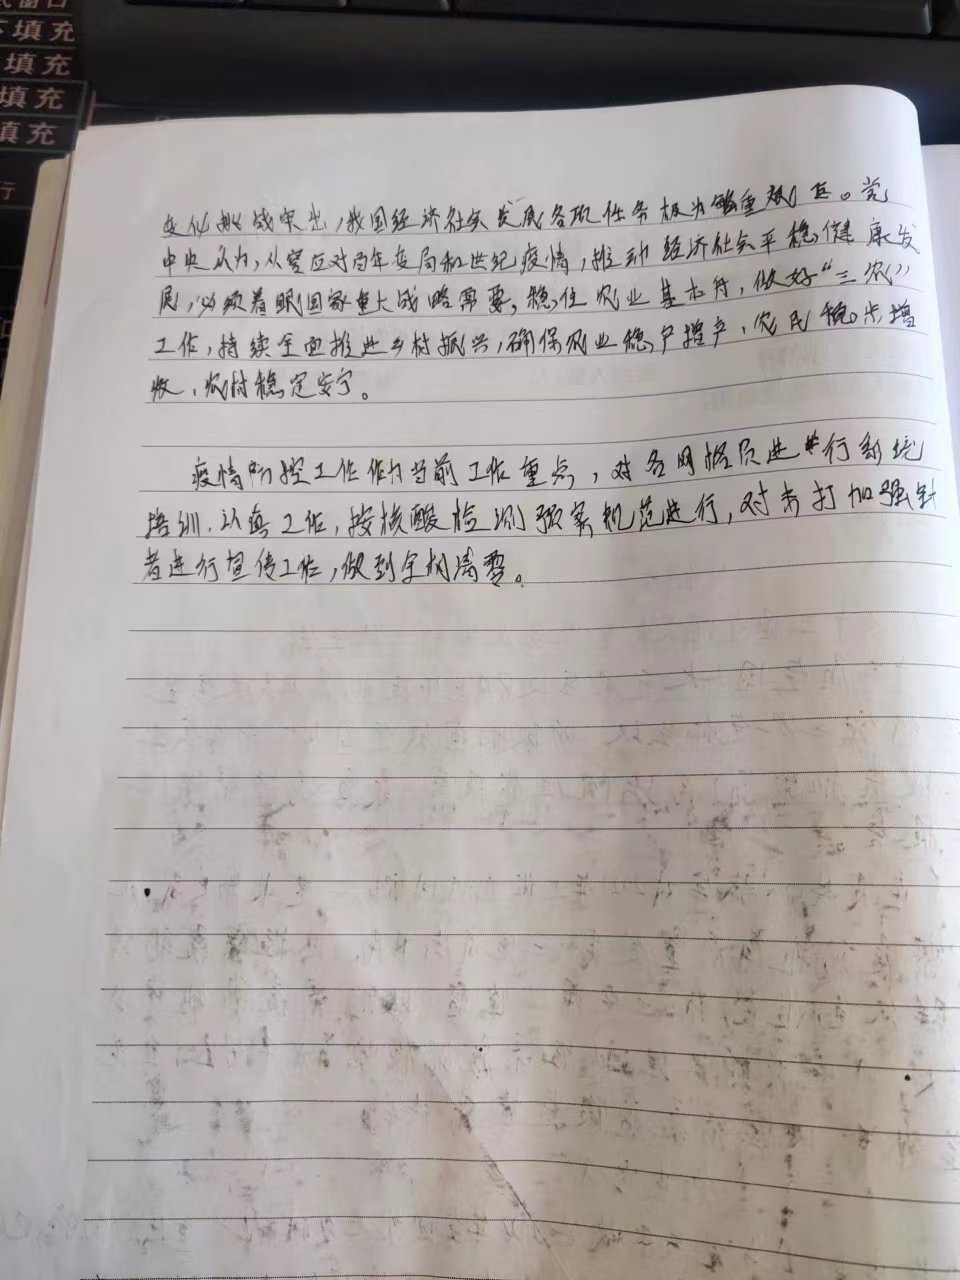 填充
填充
填充
填充
行
变化挑战突出，我国经济社会发展各项任务极为繁重艰巨。党
中央认为，从容应对百年变局和世纪疫情，推动经济社会平稳健康发
展，必须着眼国家重大战略需要，稳住农业基本盘，做好“三农”
工作，持续全面推进乡村振兴，确保农业稳产增产，农民稳步增
收，农村稳定安宁。
疫情防控工作作为当前工作重点，对各网格员进行系统
培训，认真工作，按核酸检测预案规范进行，对未打加强针
者进行宣传工作，做到全村清零。